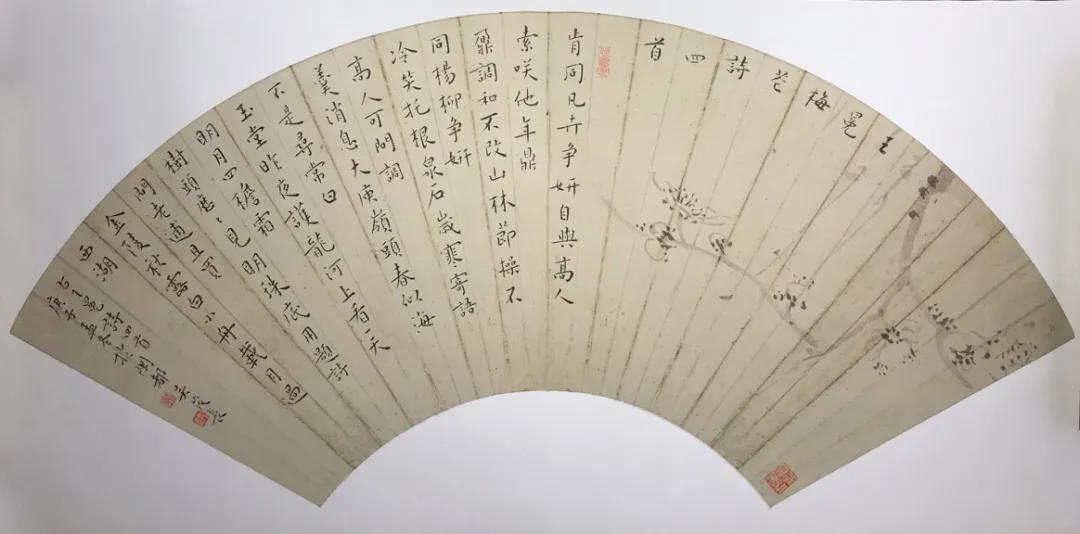 王冕梅花詩四首
肯同凡卉争妍自與高人
索咲他年鼎
鼐調和不改山林節操不
同楊柳争妍
冷笑托根泉石歲寒寄語
高人可問調
羹消息大庾嶺頭春似海
不是尋常白
玉堂昨夜護龍河上看天
明月四檐霜
樹頭歷〻見明珠底用題詩
問老逋且買
金陵秋露白小舟載月過
西湖
右王冕詩四首
庚子孟冬於